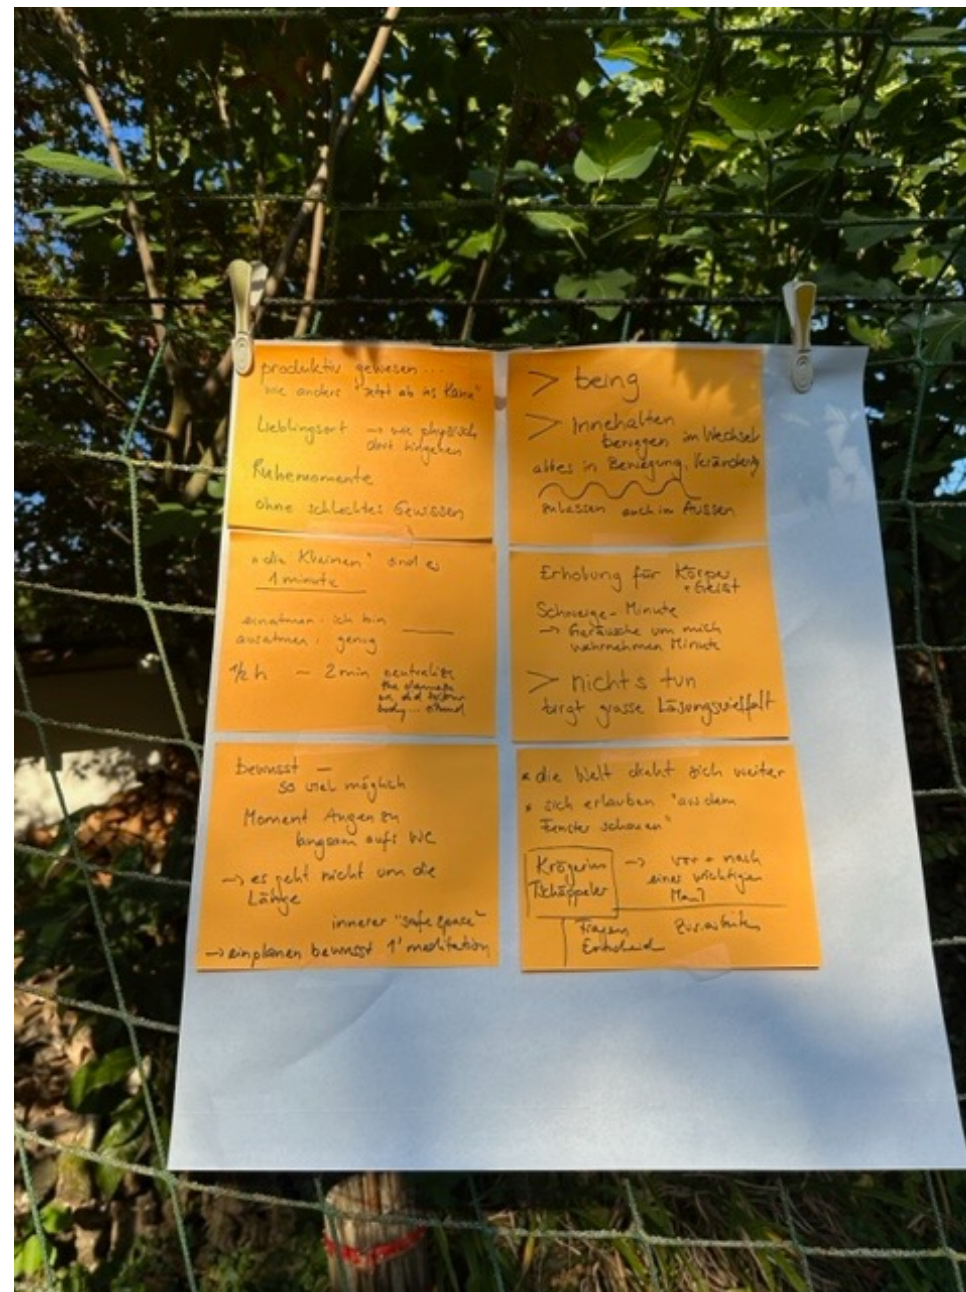 produktiv gewesen...
wie anders "Jetzt ab ins Kanu"
Lieblingsort → wie physisch
dort hingehen
Ruhemomente
ohne schlechtes Gewissen
"die Kleinen" sind es
1 minute
einatmen: ich bin
ausatmen: genug
1/2 h – 2 min neutralize
the damage
body...
bewusst –
so viel möglich
Moment Augen zu
langsam aufs WC
→ es geht nicht um die
Länge
innerer "safe space"
→ einplanen bewusst 1' meditation
> being
> Innehalten
bewegen im Wechsel
alles in Bewegung, Veränderung
zulassen auch im Aussen
Erholung für Körper
+ Geist
Schweige-Minute
→ Geräusche um mich
wahrnehmen Minute
> nichts tun
birgt grosse Lösungsvielfalt
* die Welt dreht sich weiter
* sich erlauben "aus dem
Fenster schauen"
Krögerus → vor + nach
Tschäppeler einer wichtigen
Fragen
Entscheid